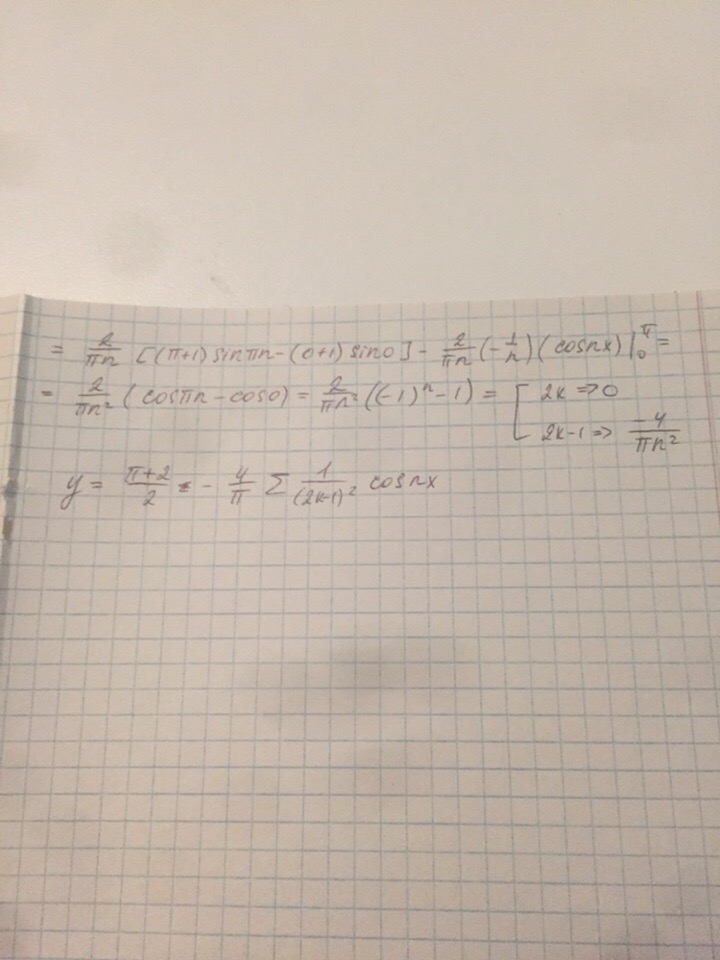 = 2/πn [(π+1) sinπn-(0+1) sin0] - 2/πn (-1/n) (cosnx)|₀^π =
= 2/πn² (cosπn - cos0) = 2/πn² ((-1)ⁿ-1) = [ 2k => 0
2k-1 => -4/πn²
y = π+2/2 - 4/π Σ 1/(2k-1)² cosnx